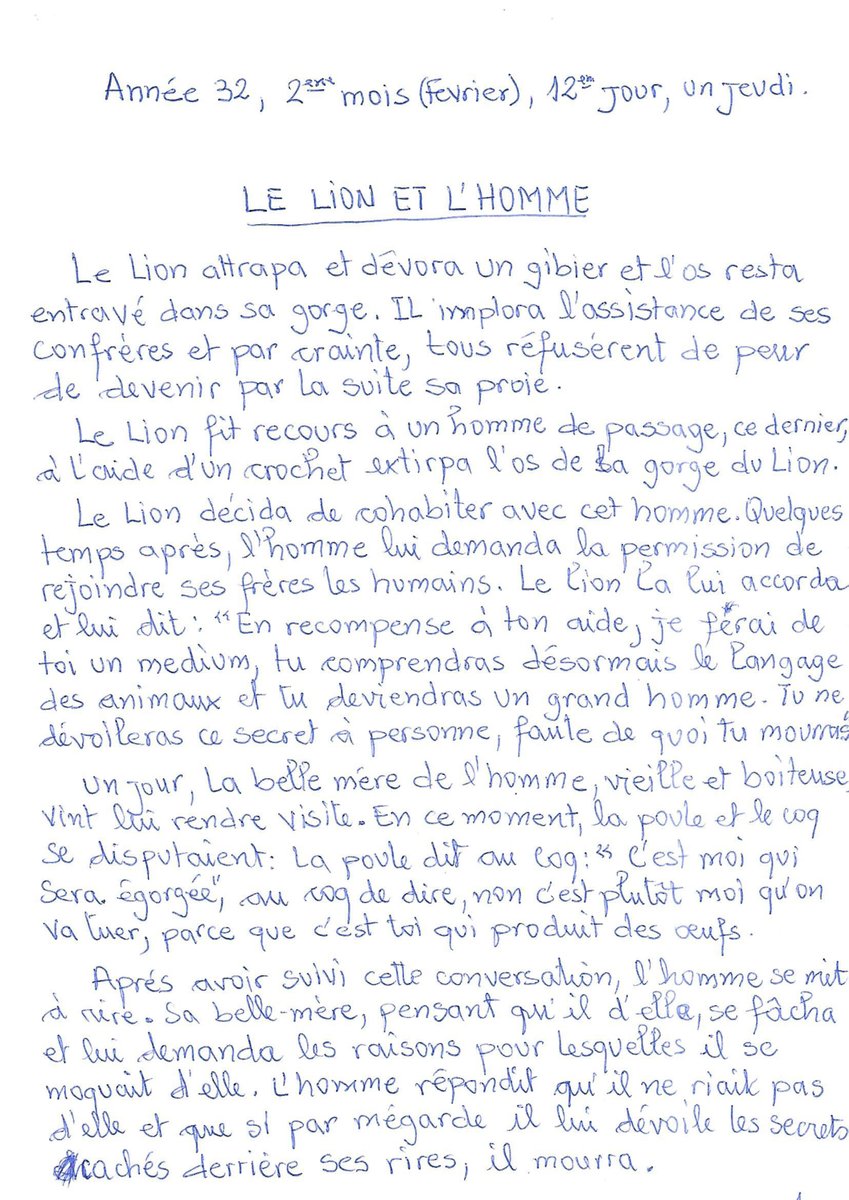 Année 32, 2ème mois (Fevrier), 12em jour, un jeudi.
LE LION ET L'HOMME
Le Lion attrapa et dévora un gibier et l'os resta
entravé dans sa gorge. IL implora l'assistance de ses
confrères et par crainte, tous réfusérent de peur
de devenir par la suite sa proie.
Le Lion fit recours à un homme de passage, ce dernier,
à l'aide d'un crochet extirpa l'os de la gorge du Lion.
Le Lion décida de cohabiter avec cet homme. Quelques
temps après, l'homme lui demanda la permission de
rejoindre ses frères les humains. Le lion la lui accorda
et lui dit : "En recompense à ton aide, je férai de
toi un medium, tu comprendras désormais le langage
des animaux et tu deviendras un grand homme. Tu ne
dévoileras ce secret à personne, faute de quoi tu mourras
un jour, la belle mère de l'homme, vieille et boiteuse,
vint lui rendre visite. En ce moment, la poule et le coq
se disputaient: La poule dit au coq: "c'est moi qui
sera égorgée", au coq de dire, non c'est plutôt moi qu'on
va tuer, parce que c'est toi qui produit des œufs.
Aprés avoir suivi cette conversation, l'homme se mit
à rire. Sa belle-mère, pensant qu'il d'elle, se fâcha
et lui demanda les raisons pour lesquelles il se
moquait d'elle. L'homme répondit qu'il ne riait pas
d'elle et que si par mégarde il lui dévoile les secrets
cachés derrière ses rires, il mourra.